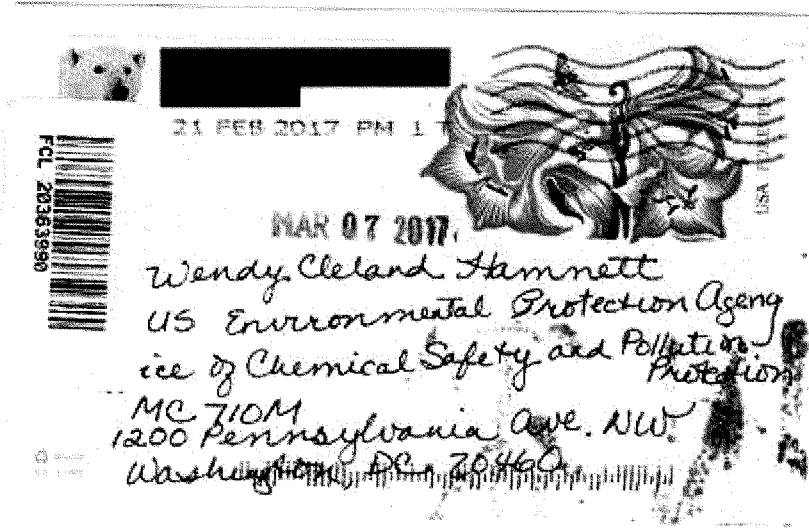 21 FEB 2017 PM 1
USA
FCL 20363990
MAR 07 2017
Wendy Cleland Hamnett
US Environmental Protection Agency
ice of Chemical Safety and Pollution
Protection
MC 710M
1200 Pennsylvania Ave. NW
Washington, DC. 20460